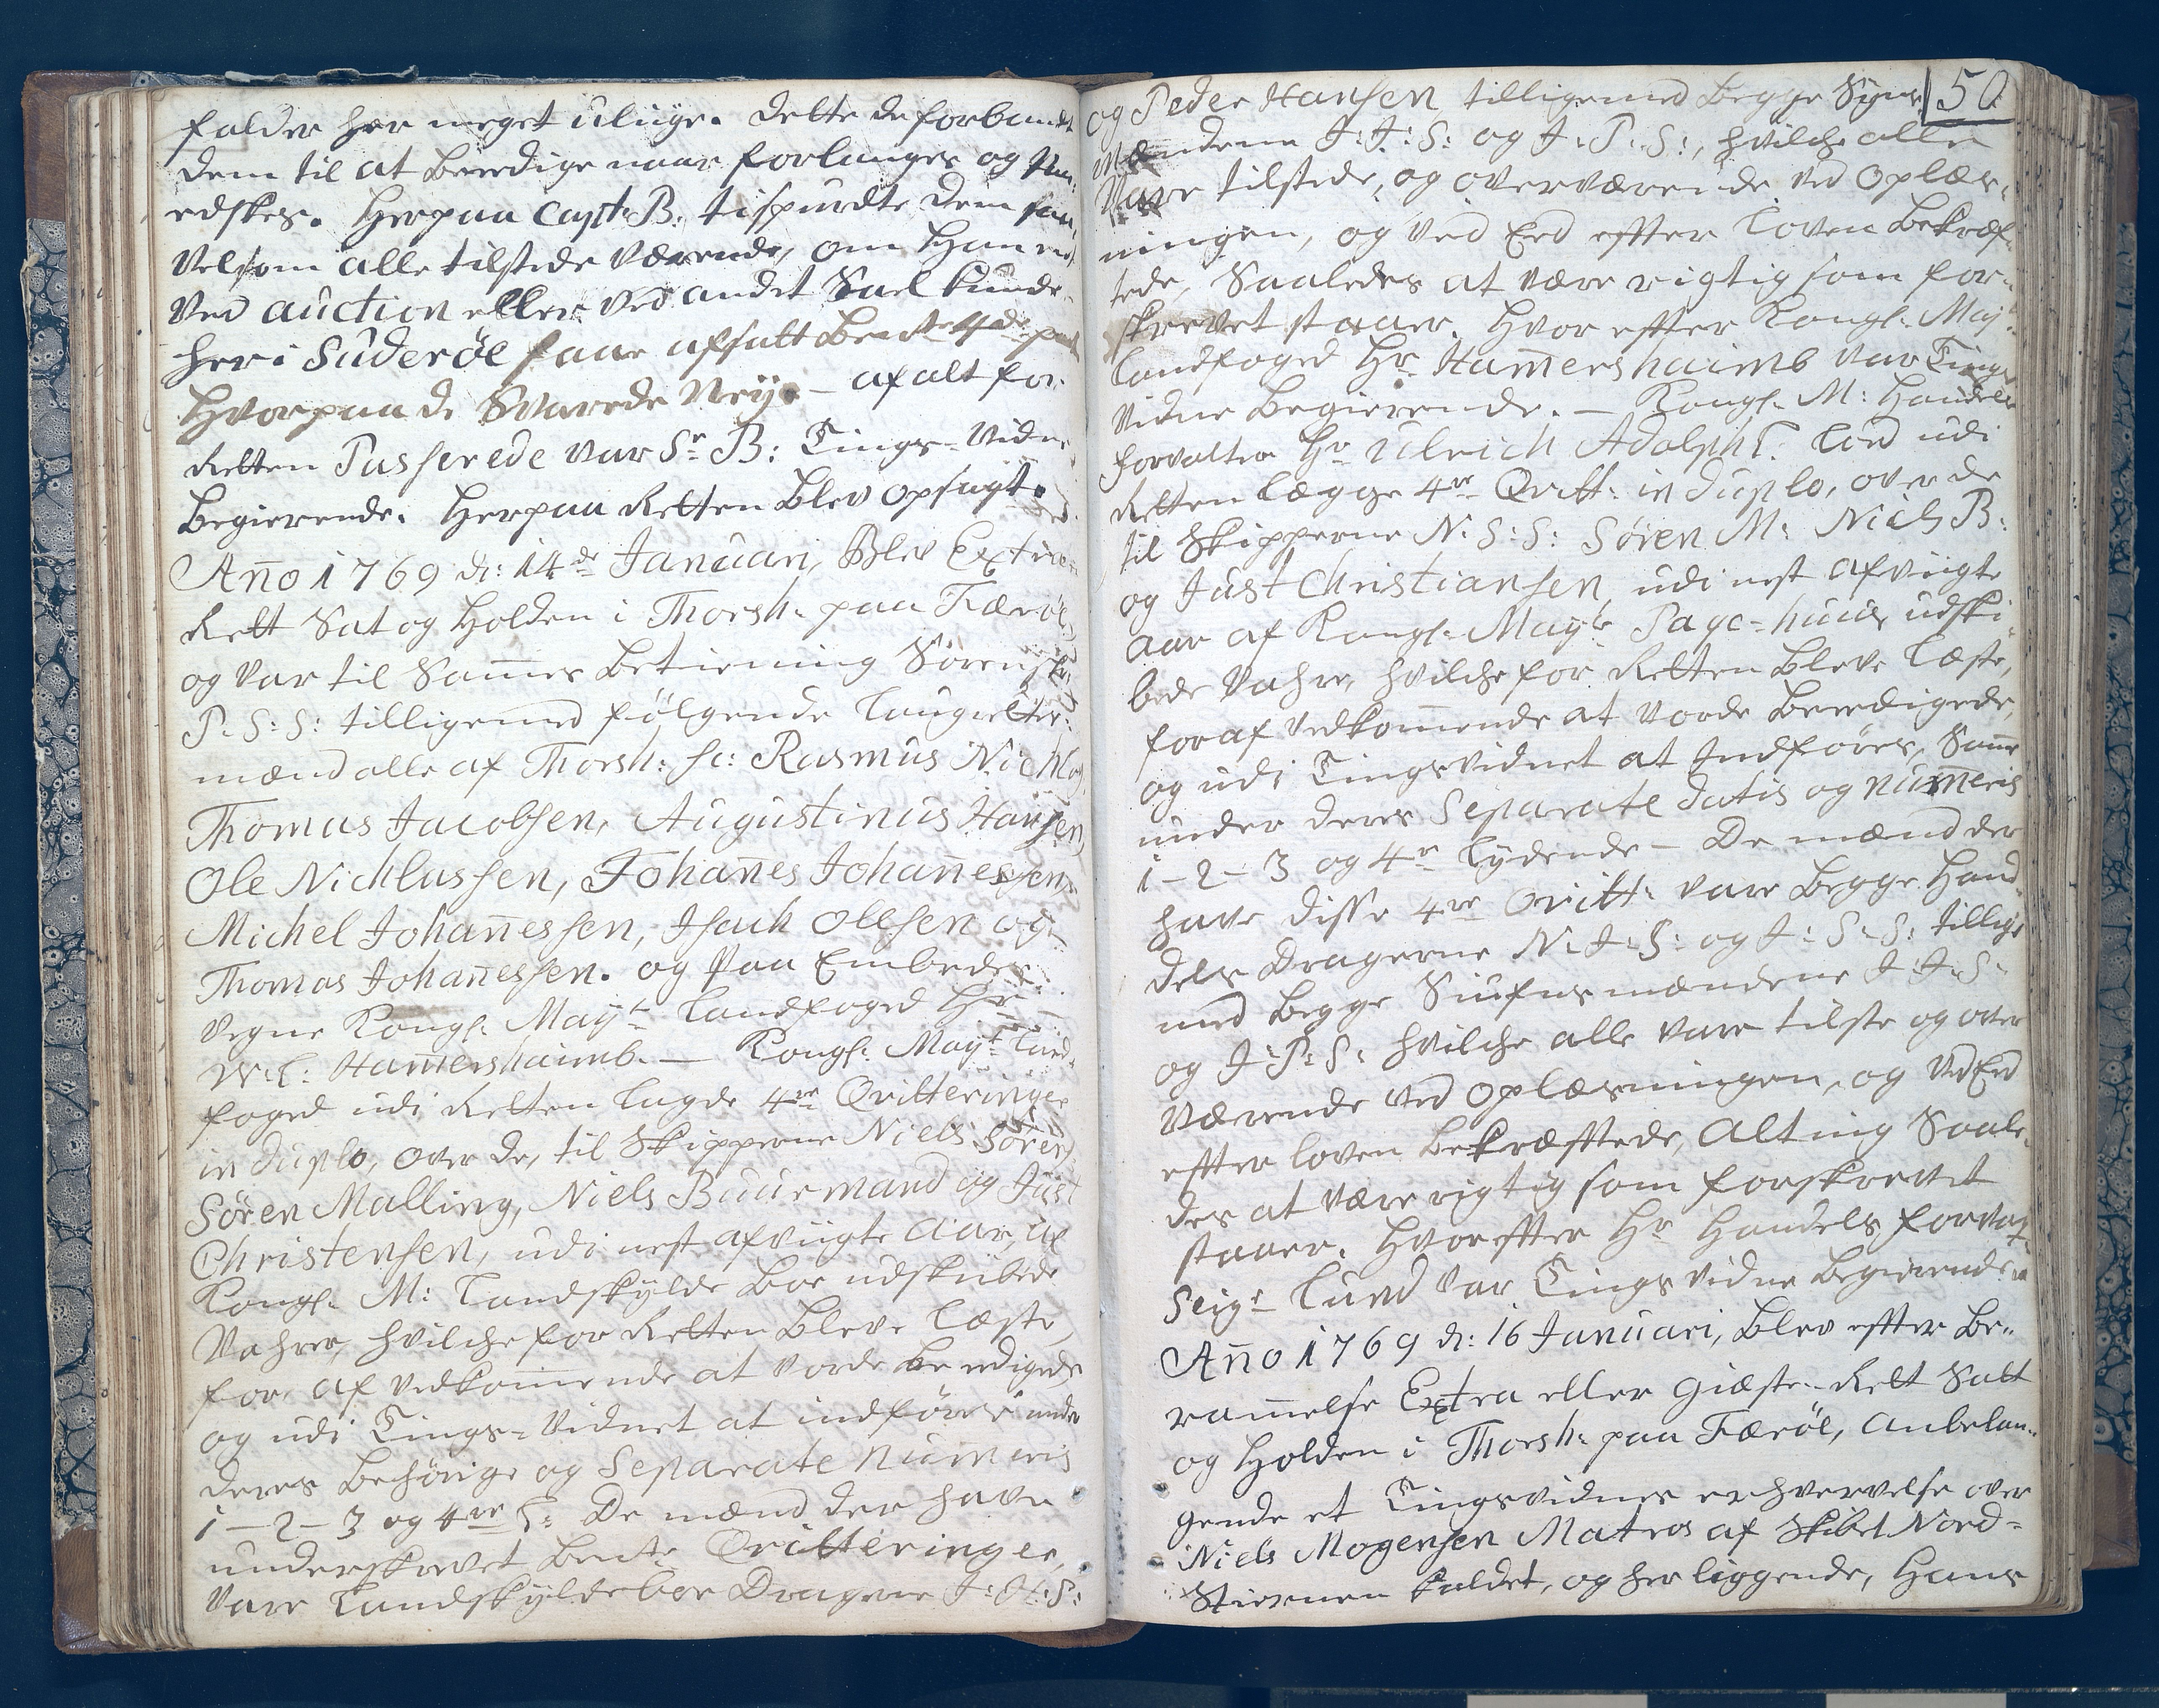 falder her meget uliige. Dette de forbandt
dem til at beedige naar forlanges og
edskes. Herpaa Capt: B: tilspurdte dem saa
velsom alle tilstede værende, om han
ved auction eller ved andet Sael kunde
her i Süderöe faae afsatt
Hvorpaa de Svarede Neij. – af alt for
Retten Passerede var Sr. B: Tings-Vidne
begierende. Herpaa Retten blev opsagt.
Año 1769 d: 14de Januari, Blev Extra
Rett Sat og Holden i Thorsh: paa Færöe,
og var til Sames betiening Sorenskr:
P. S: S: tilligemed fölgende Laugrettes
mænd alle af Thorsh: sc: Rasmus Nichlas:
Thomas Jacobsen, Augustinus Hansen,
Ole Nichlassen, Johañes Johañessen,
Michel Johañessen, Isach Olesen og
Thomas Johañessen. og paa Embedes
vegne Kongl: Mayts Landfoged Hr
W: L: Hamershaimb. — Kongl: Mayts Land-
foged udi Retten lagde 4re Qvitteringer
in duplo, over de, til Skipperne Niels Sören:
Sören Malling, Niels Buurmand og Just
Christensen, udi nest afvigte Aar, af
Kongl: M: Landskylde Boe udskibede
Vahrer, hvilche for Retten bleve læste,
for af vedkomende at vorde beedigede
og udi Tings-Vidnet at indföres under
deres behörige og Separate Numeris
1–2–3 og 4re L: De mænd der have
underskrevet bente Qvitteringer,
vare Landskyldeboe Dragerne J: H: S:
50
og Peder Hansen tilligemed begge Syns
Mændene J: J: S: og J: P: S:, hvilche alle
Vare tilstede, og overværende ved oplæs-
ningen, og ved Eed efter Loven bekræf-
tede, Saaledes at være rigtig som for-
skrevet staaer. Hvorefter Kongl: Mayts
Landfoged Hr Hamershaimb var Tings
vidne begierende. — Kongl: M: Handels
forvalter Hr Ulrich Adolph L: Lod udi
Retten lægge 4re Qvitt: in duplo, over de
til Skipperne N: S: S: Sören M: Niels B:
og Just Christiansen udi nest afvigte
Aar af Kongl: Mayts Pack-huus udski-
bede Vahre, hvilche for Retten bleve læste,
for af vedkomende at vorde beedigede,
og udi Tingsvidnet at Indföres, Same
under deres Separate datis og numeris
1–2–3 og 4re lydende – De mænd der
have disse 4re Qvitt: vare begge Hand-
dels Dragerne N: J: S: og J: S: S: tillige
med begge Siunsmændene J: J: S:
og J: P: S: hvilche alle vare tilste og over
værende ved oplæsningen, og ved Eed
efter loven bekræfttede, Alting Saale-
des at være rigtig som forskrevet
staaer. Hvorefter Hr Handels forvalt:
Seigr Lund var Tings vidne begierende
Año 1769 d: 16 Januari, blev efter be-
ramelse Extra eller giæste-Rett Satt
og Holden i Thorsh: paa Færöe, anbelan-
gende et Tingsvidnes erhvervelse over
Niels Mogensen Matros af Skibet Nord-
Stiernen kaldet, og her liggende, Hans